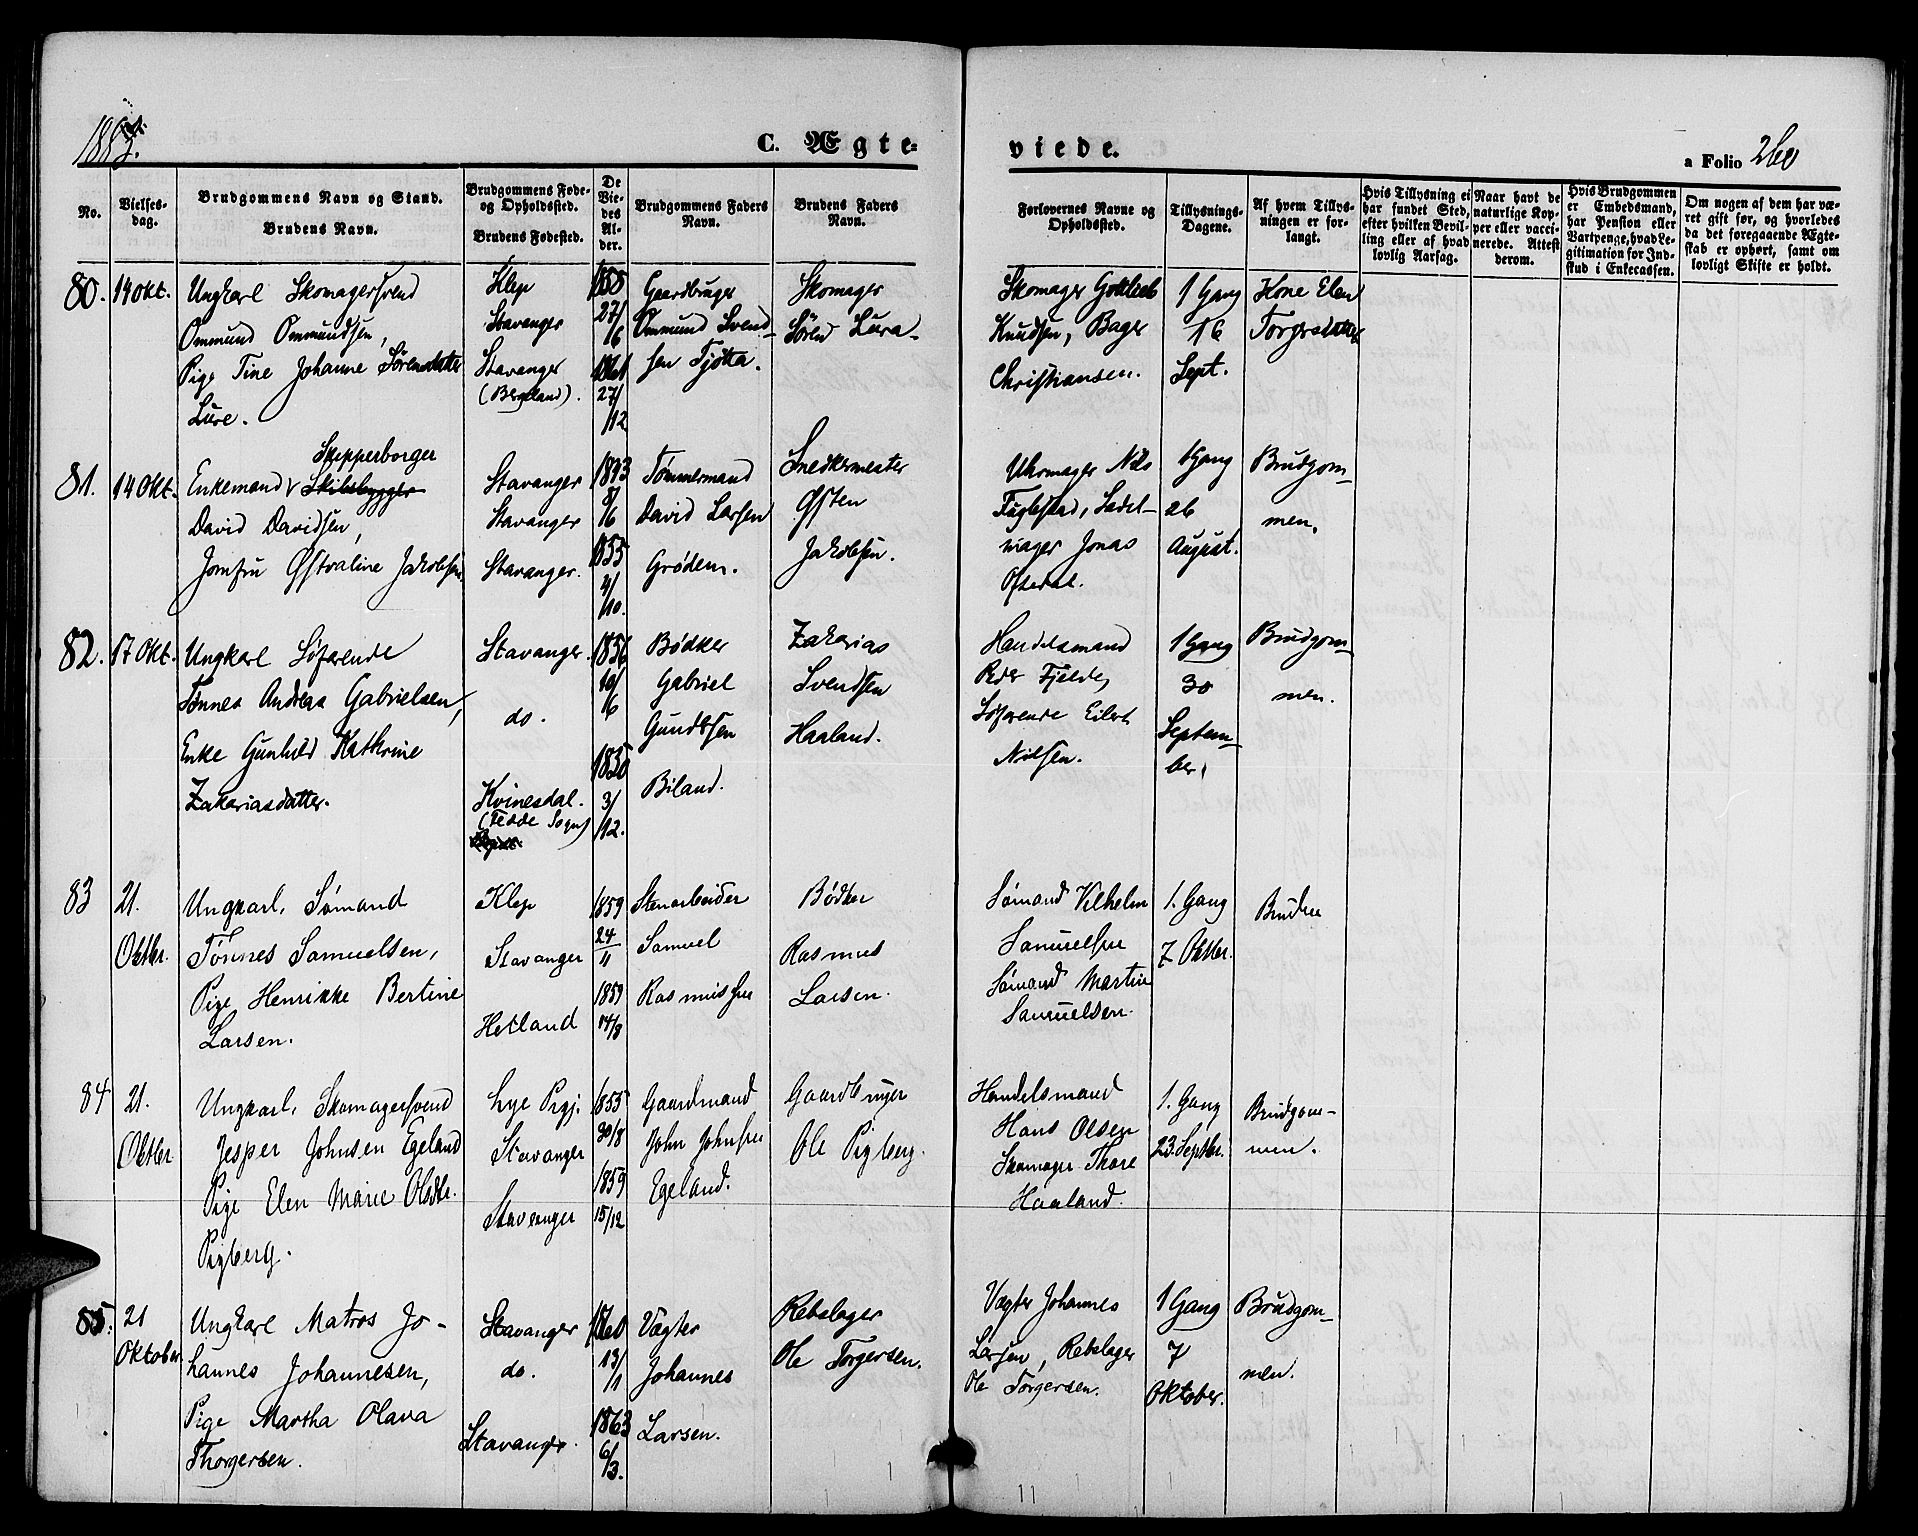 1883.
C. Ægte-
viede.
a Folio 260
No.
Vielses-
dag.
Brudgommens Navn og Stand.
Brudens Navn.
Brudgommens Føde-
og Opholdssted.
Brudens Fødested.
De
Vie-
des
Al-
der.
Brudgommens Faders
Navn.
Brudens Faders
Navn.
Forlovernes Navne og
Opholdssted.
Tillysnings-
Dagene.
Af hvem Tillys-
ningen er for-
langt.
Hvis Tillysning ei
har fundet Sted,
efter hvilken Bevil-
ling eller af hvad
lovlig Aarsag.
Naar havt de
naturlige Kop-
per eller vacci-
nerede. Attest
derom.
Hvis Brudgommen
er Embedsmand,
har Pension eller
Vartpenge, hvad Le-
gitimation for Ind-
skud i Enkecassen.
Om nogen af dem har væ-
ret gift før, og hvorledes
da det foregaaende Ægte-
skab er ophørt, samt om
lovligt Skifte er holdt.
80.
14 Okt.
Ungkarl Skomagersvend
Ommund Ommundsen,
Pige Tine Johanne Sørensdatter
Lure.
Klep
Stavanger
Stavanger
(Bergeland).
1858
27/
/6
1861
27/
/12
Gaardbruger
Ommund Svend-
sen Tjøtta.
Skomager
Sören Lura
Skomager Gottlieb
Knudsen, Bager
Christiansen.
1 Gang
16
Sept.
Kone Elen
Torgersdatter
81.
14 Okt.
Skipperborger
Enkemand Skibsbygger
David Davidsen,
Jomfru Østvaline Jakobsen
Stavanger
Stavanger
Stavanger.
1833
8/
/6
1855
4/
/10.
Tømmermand
David Larsen
Grødem.
Snedkermester
Østen
Jakobsen.
Uhrmager Nils
Fuglestad, Sadel-
mager Jonas
Oftedal.
1 Gang
26
August.
Brudgom-
men.
82.
17 Okt.
Ungkarl Søfarende
Tønnes Andreas Gabrielsen,
Enke Gunhild Kathrine
Zakariasdatter.
Stavanger.
do.
Kvinesdal.
(Fedde Sogn)
1836
19/
/6
1830
3/
/12.
Bødker
Gabriel
Gundersen
Biland.
Zakarias
Svendsen
Haaland.
Handelsmand
Peder Fjelde,
Søfarende Eilert
Nilsen.
1 Gang
30
Septem-
ber.
Brudgom-
men.
83
21.
Oktbr.
Ungkarl, Sømand
Tønnes Samuelsen,
Pige Henrikke Bertine
Larsen.
Klep
Stavanger
Hetland
1859
24
11
1859
14/8
Stenarbeider
Samuel
Rasmussen
Bødker
Rasmus
Larsen.
Sømand Vilhelm
Samuelsen
Sømand Martin
Samuelsen.
1. Gang
7 Oktbr.
Bruden
84
21.
Oktbr
Ungkarl, Skomagersvend
Jesper Johnsen Egeland
Pige Elen Marie Olsdtr.
Pigberg.
Lye Prgj.
Stavanger
Stavanger
1855
30/8
1859
15/12
Gaardmand
John Johnsen
Egeland.
Gaardbruger
Ole Pigberg.
Handelsmand
Hans Olsen
Skomager Thore
Haaland.
1. Gang
23. Septbr.
Brudgom-
men.
85.
21
Oktober
Ungkarl Matros Jo-
hannes Johannesen,
Pige Martha Olava
Thorgersen.
Stavanger
do.
Stavanger.
1860
13/
/1
1863
6/
/3.
Vægter
Johannes
Larsen.
Rebslager
Ole Torgersen.
Vægter Johannes
Larsen, Rebslager
Ole Torgersen.
1 Gang
7
Oktober.
Brudgom-
men.